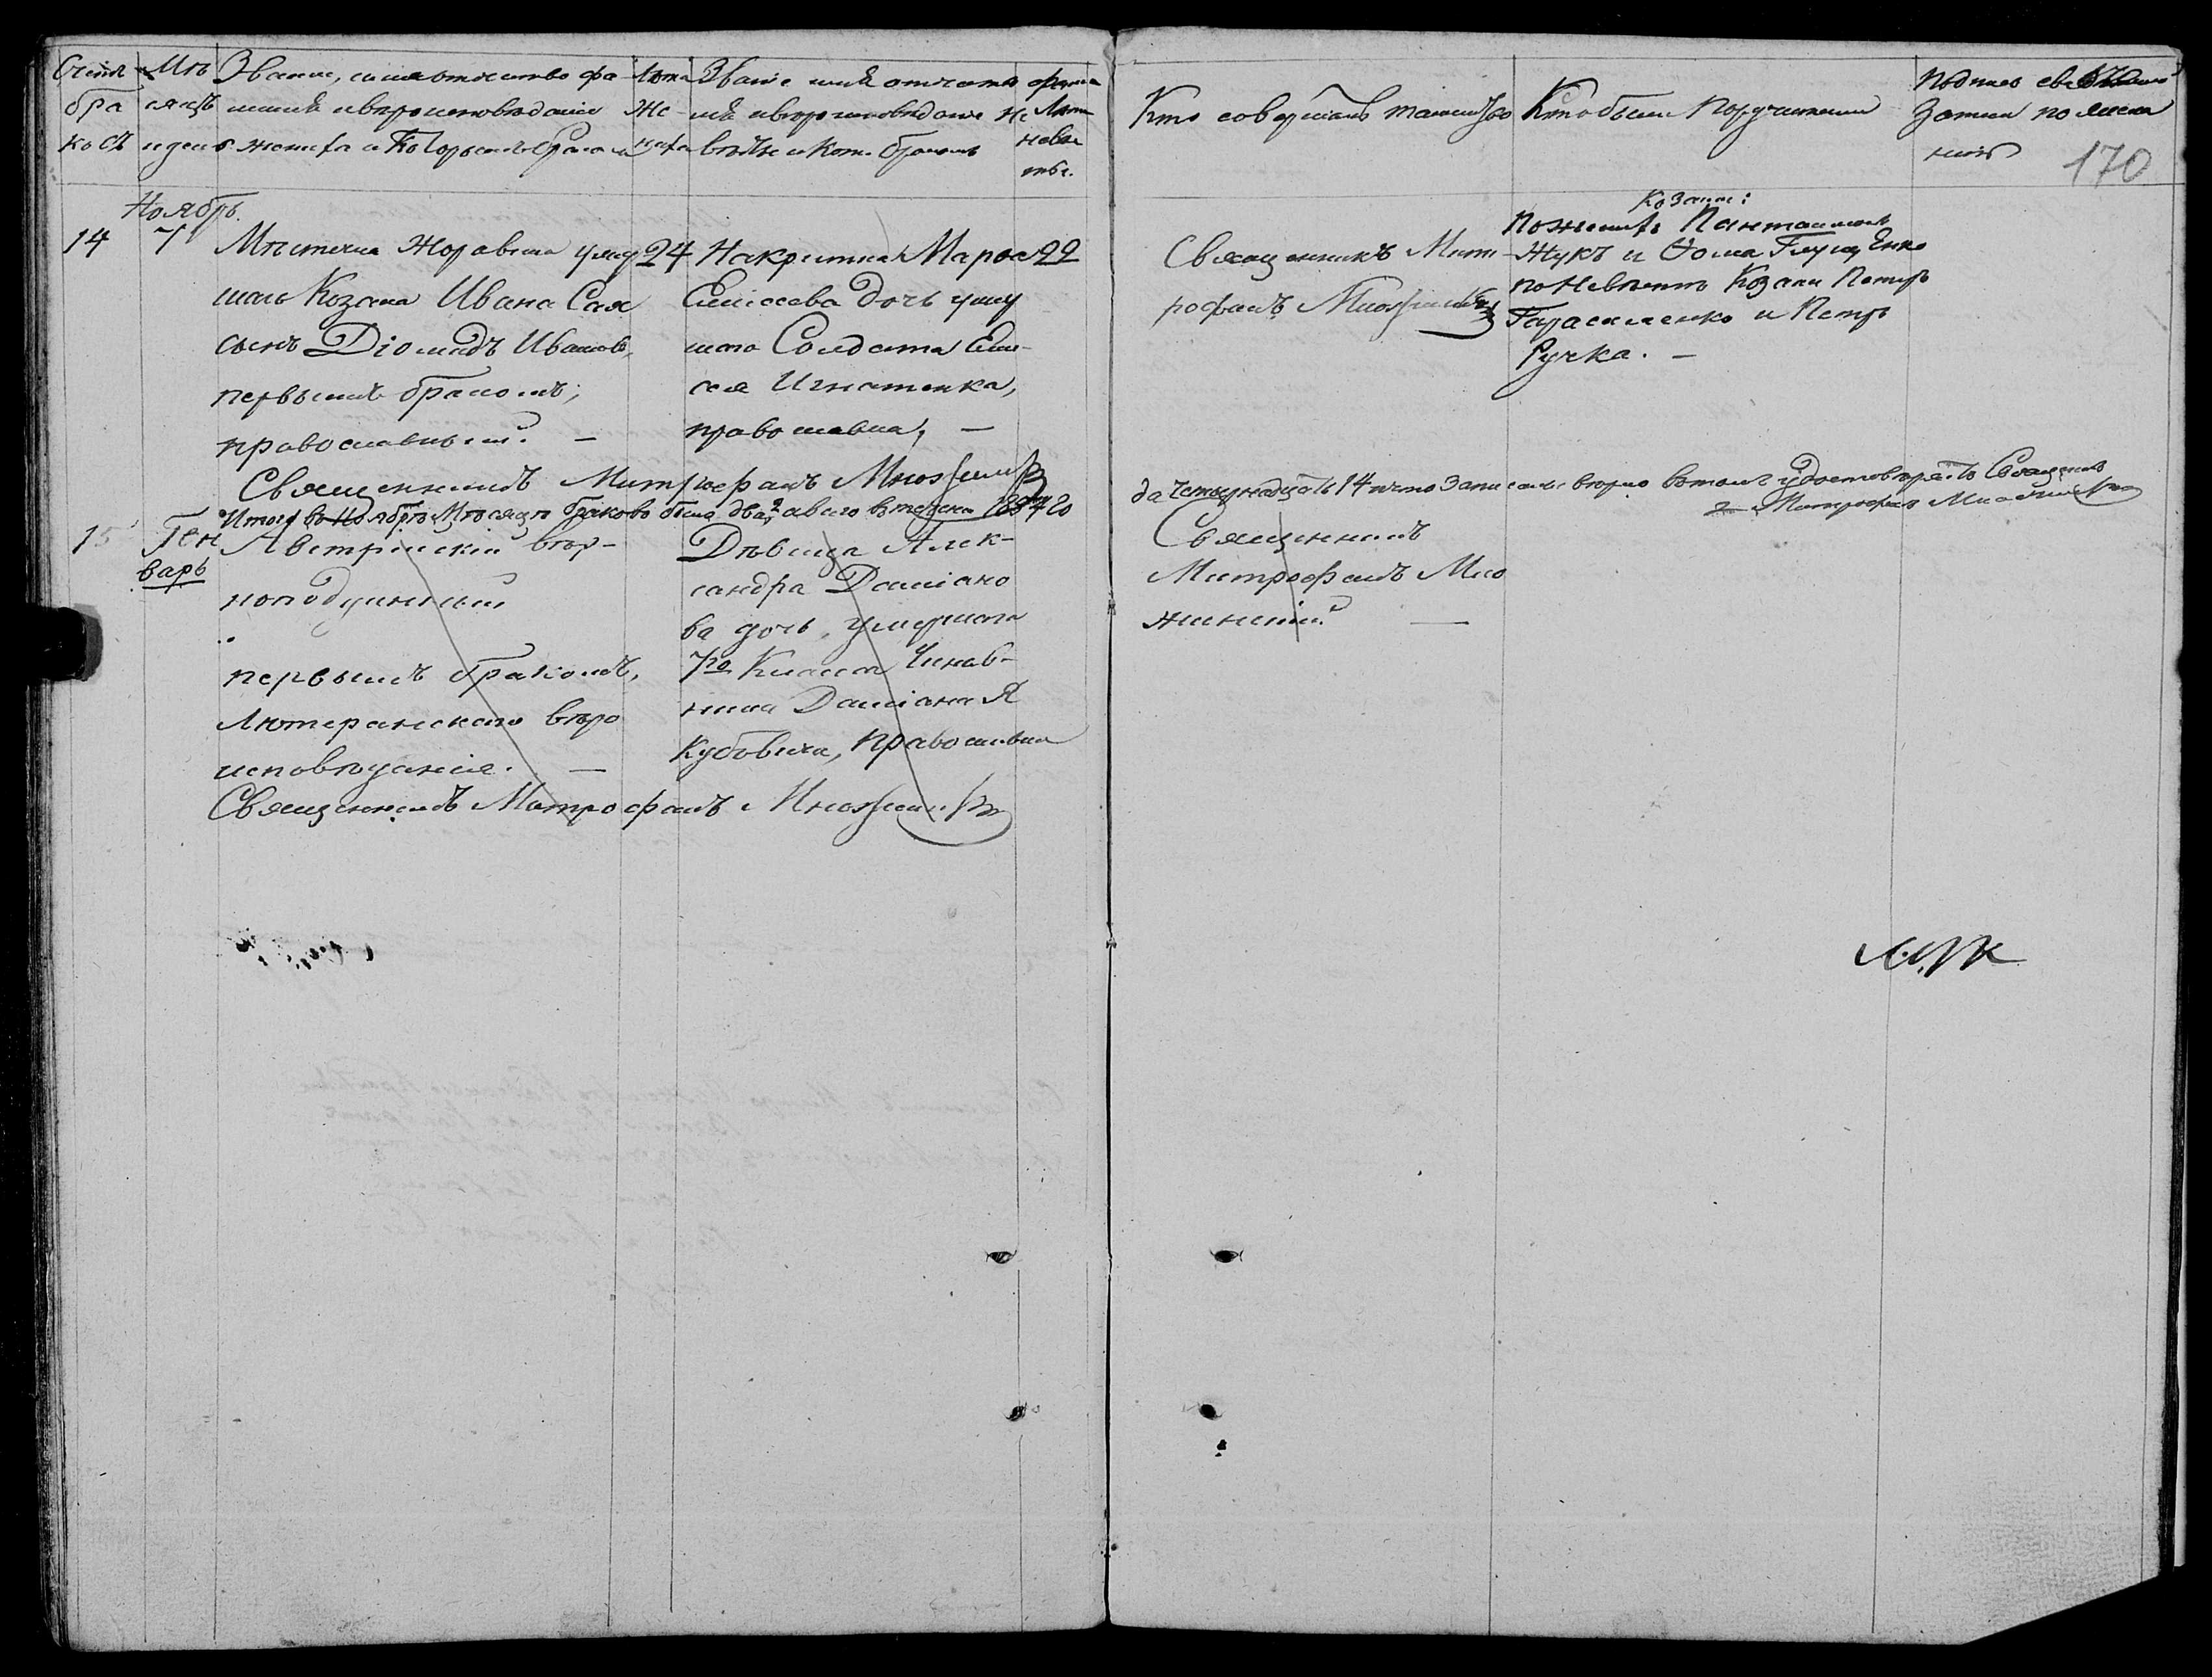 Счетъ бра ковъ
Мѣ сяцъ и день
Званіе, имя отчество фа милія и вѣроисповѣданіе жениха и Которымъ бракомъ
Лѣта Же ниха
Званіе имя отчество фами лія и вѣроисповѣданіе не вѣсты и Кот. бракомъ
Лѣта невѣ сты.
Кто совершалъ таинство
Кто были Поручители
Подпись сви записи по желанію
170
Ноябрь
14
7
Мѣстечка Жоравки умер
шаго Козака Ивана Сая
сынъ Діомидъ Ивановъ,
первымъ бракомъ,
православный. —
24
Марѳа
Елисеева дочь умер
шаго Солдата Ели-
сея Игнатенка,
православна, —
22
Священникъ Мит-
рофанъ
Козаки:
По женихѣ Пантелимонъ
Жукъ и Ѳома
по Невѣстѣ Козаки Петръ
Герасименко и Петръ
Ручка. —
Священникъ Митрофанъ
Итого въ Ноябрѣ Мѣсяцѣ браковъ было два, 2 а всего въ теченіи 1847 го
да четырнадцать 14 что записаны вѣрно въ томъ удостовѣряетъ Священникъ
Митрофанъ
15
Ген
варь
Австрійскій вѣр-
ноподданный
первымъ бракомъ,
Лютеранскаго вѣро
исповѣданія. —
Дѣвица Алек-
сандра Даміано
ва дочь, умершаго
7го Класса Чинов-
ника Даміана Я
кубовича, православна
Священникъ
Митрофанъ
Священникъ Митрофанъ